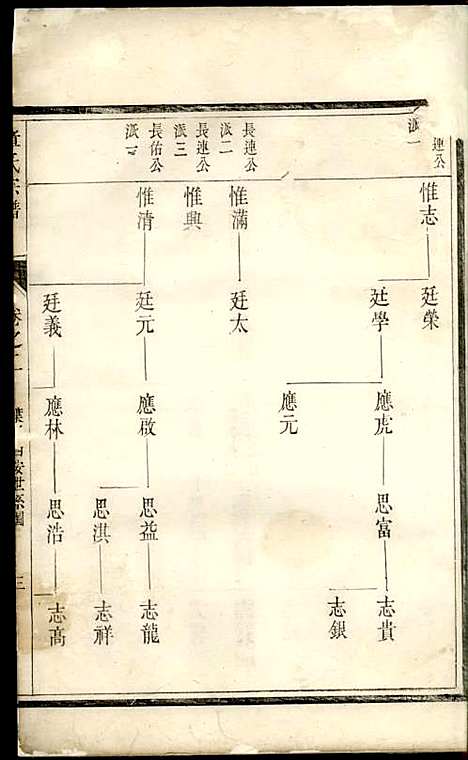 連公
派一
惟志
廷榮
廷學
應虎
思富
志貴
志銀
應元
長連公
派二
惟滿
廷太
長連公
派三
惟興
長佑公
派一
惟清
廷元
應啟
思益
志龍
思淇
志祥
廷義
應林
思浩
志高
氏宗譜
卷之二
世系圖
三